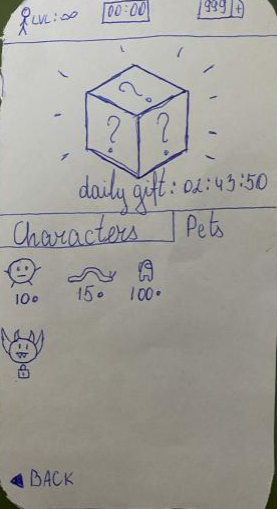 LVL: ∞ 00:00 999 +
?
? ?
daily gift: 02:43:50
Characters Pets
10 15 100
BACK